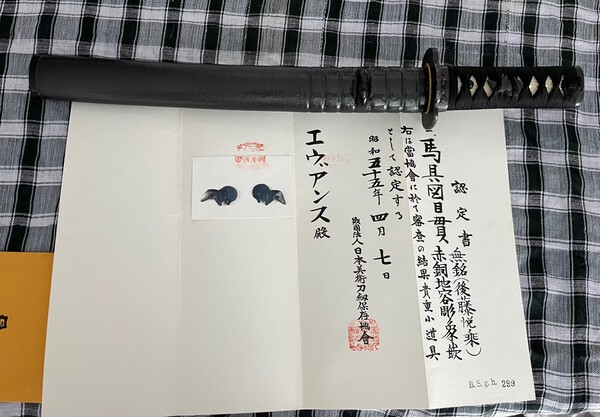 認定書
無銘(後藤悦乗)
馬具図目貫 赤銅地容彫象嵌
右は當協會に於て審査の結果貴重小道具
として認定する
昭和五十五年四月七日
財団法人日本美術刀劔保存協會
エヴアンス殿
B.S.g.h. 299